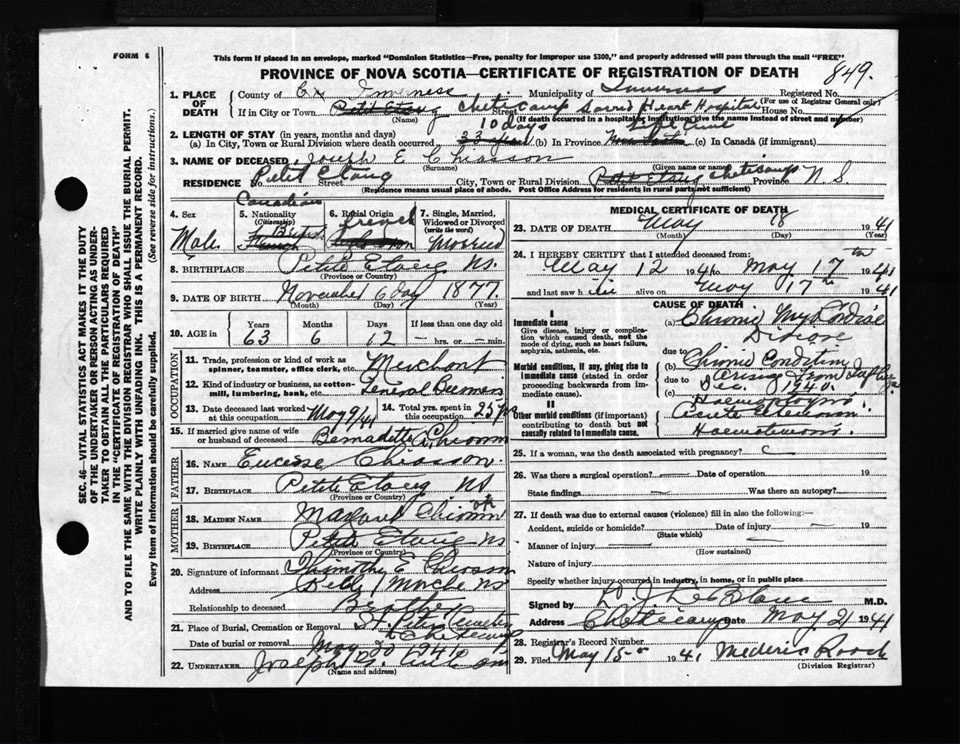 FORM 6
This form if placed in an envelope, marked "Dominion Statistics—Free, penalty for improper use $300," and properly addressed will pass through the mail "FREE"
PROVINCE OF NOVA SCOTIA—CERTIFICATE OF REGISTRATION OF DEATH 849.
1. PLACE OF DEATH
County of Inverness Municipality of Inverness Registered No.
(For use of Registrar General only)
If in City or Town Petit Etang Street Cheticamp Sacred Heart Hospital House No.
(Name) (If death occurred in a hospital or institution, give the name instead of street and number)
2. LENGTH OF STAY (in years, months and days) 10 days
(a) In City, Town or Rural Division where death occurred 33 years (b) In Province (c) In Canada (if immigrant)
3. NAME OF DECEASED Joseph E Chiasson
(Surname) (Given name or names)
RESIDENCE No. Petit Etang Street City, Town or Rural Division Petit Etang Cheticamp Province N S
(Residence means usual place of abode. Post Office Address for residents in rural parts not sufficient)
4. Sex
Male
5. Nationality
(Citizenship)
Canadian
French
6. Racial Origin
French
7. Single, Married, Widowed or Divorced
(write the word)
Married
8. BIRTHPLACE Petit Etang NS.
(Province or Country)
9. DATE OF BIRTH November 6 day 1877
(Month) (Day) (Year)
10. AGE in
Years 63
Months 6
Days 12
If less than one day old
– hrs. or – min.
OCCUPATION
11. Trade, profession or kind of work as spinner, teamster, office clerk, etc. Merchant
12. Kind of industry or business, as cotton-mill, lumbering, bank, etc. General
13. Date deceased last worked at this occupation May 9/41
14. Total yrs. spent in this occupation 25 yrs
15. If married give name of wife or husband of deceased Bernadette Chiasson
FATHER
16. NAME Chiasson
17. BIRTHPLACE Petit Etang NS
(Province or Country)
MOTHER
18. MAIDEN NAME Margaret Chiasson
19. BIRTHPLACE Petit Etang NS
(Province or Country)
20. Signature of informant Timothy E Chiasson
Address Belle Marche NS
Relationship to deceased Brother
21. Place of Burial, Cremation or Removal St. Peter Cemetery Cheticamp
Date of burial or removal May 20 1941
22. UNDERTAKER Joseph
(Name and address)
MEDICAL CERTIFICATE OF DEATH
23. DATE OF DEATH May 18 1941
(Month) (Day) (Year)
24. I HEREBY CERTIFY that I attended deceased from:
May 12 1941 to May 17th 1941
and last saw h im alive on May 17th 1941
CAUSE OF DEATH
I
Immediate cause
Give disease, injury or complication which caused death, not the mode of dying, such as heart failure, asphyxia, asthenia, etc.
(a) Chronic Myocardial Disease
Morbid conditions, if any, giving rise to immediate cause (stated in order proceeding backwards from immediate cause).
due to
(b) Chronic Condition
due to arising from
(c) Dec. 1940.
II
Other morbid conditions (if important) contributing to death but not causally related to immediate cause.
Haemoptysis
25. If a woman, was the death associated with pregnancy?
26. Was there a surgical operation? — Date of operation 19
State findings — Was there an autopsy?
27. If death was due to external causes (violence) fill in also the following:—
Accident, suicide or homicide? Date of injury — 19
(State which)
Manner of injury
(How sustained)
Nature of injury
Specify whether injury occurred in industry, in home, or in public place
Signed by J LeBlanc M.D.
Address Cheticamp Date May 21 1941
28. Registrar's Record Number
29. Filed May 15 1941 Mederic Roach
(Division Registrar)
SEC. 46—VITAL STATISTICS ACT MAKES IT THE DUTY
OF THE UNDERTAKER OR PERSON ACTING AS UNDER-
TAKER TO OBTAIN ALL THE PARTICULARS REQUIRED
IN THE "CERTIFICATE OF REGISTRATION OF DEATH"
AND TO FILE THE SAME WITH THE DIVISION REGISTRAR WHO SHALL ISSUE THE BURIAL PERMIT.
WRITE PLAINLY WITH UNFADING INK. THIS IS A PERMANENT RECORD.
Every item of information should be carefully supplied. (See reverse side for instructions.)